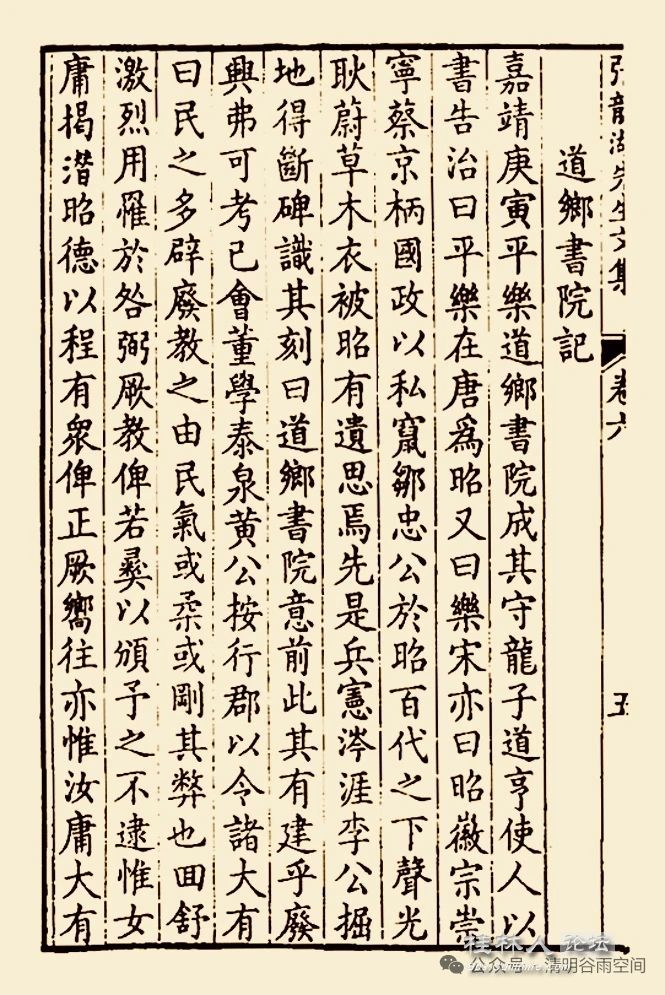 張龍湖先生文集
卷六
五
道鄉書院記
嘉靖庚寅平樂道鄉書院成其守龍子道亨使人以
書告治曰平樂在唐爲昭又曰樂宋亦曰昭徽宗崇
寧蔡京柄國政以私竄鄒忠公於昭百代之下聲光
耿蔚草木衣被昭有遺思焉先是兵憲涔涯李公掘
地得斷碑識其刻曰道鄉書院意前此其有建乎廢
興弗可考已會董學泰泉黄公按行郡以令諸大有
曰民之多辟廢教之由民氣或柔或剛其弊也回舒
激烈用罹於咎弼厥教俾若彛以頒予之不逮惟女
庸揭潛昭德以程有衆俾正厥嚮往亦惟汝庸大有
桂林人论坛
公众号 · 清明谷雨空间